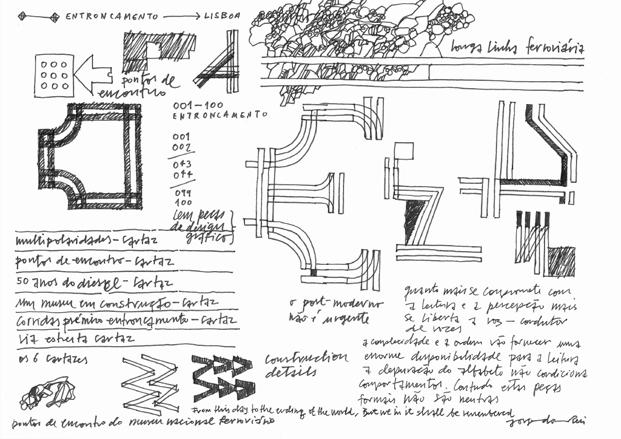 ENTRONCAMENTO → LISBOA
longa linha ferroviária
pontos de
encontro
001-100
ENTRONCAMENTO
001
002
043
044
099
100
cem peças
de design
gráfico
multipolaridades - cartaz
pontos de encontro - cartaz
50 anos do diesel - cartaz
um museu em construção - cartaz
corridas prémio entroncamento - cartaz
via estreita cartaz
os 6 cartazes
o post-moderno
não é urgente
quanto mais se compromete com
a leitura e a percepção mais
se liberta a voz - condutor
de vozes
a complexidade e a ordem vão fornecer uma
enorme disponibilidade para a leitura
a depuração do alfabeto não condiciona
comportamentos. Contudo estas peças
formais não são neutras
Construction
details
From this day to the ending of the world, But we in it shall be remembered
pontos de encontro do museu nacional ferroviário